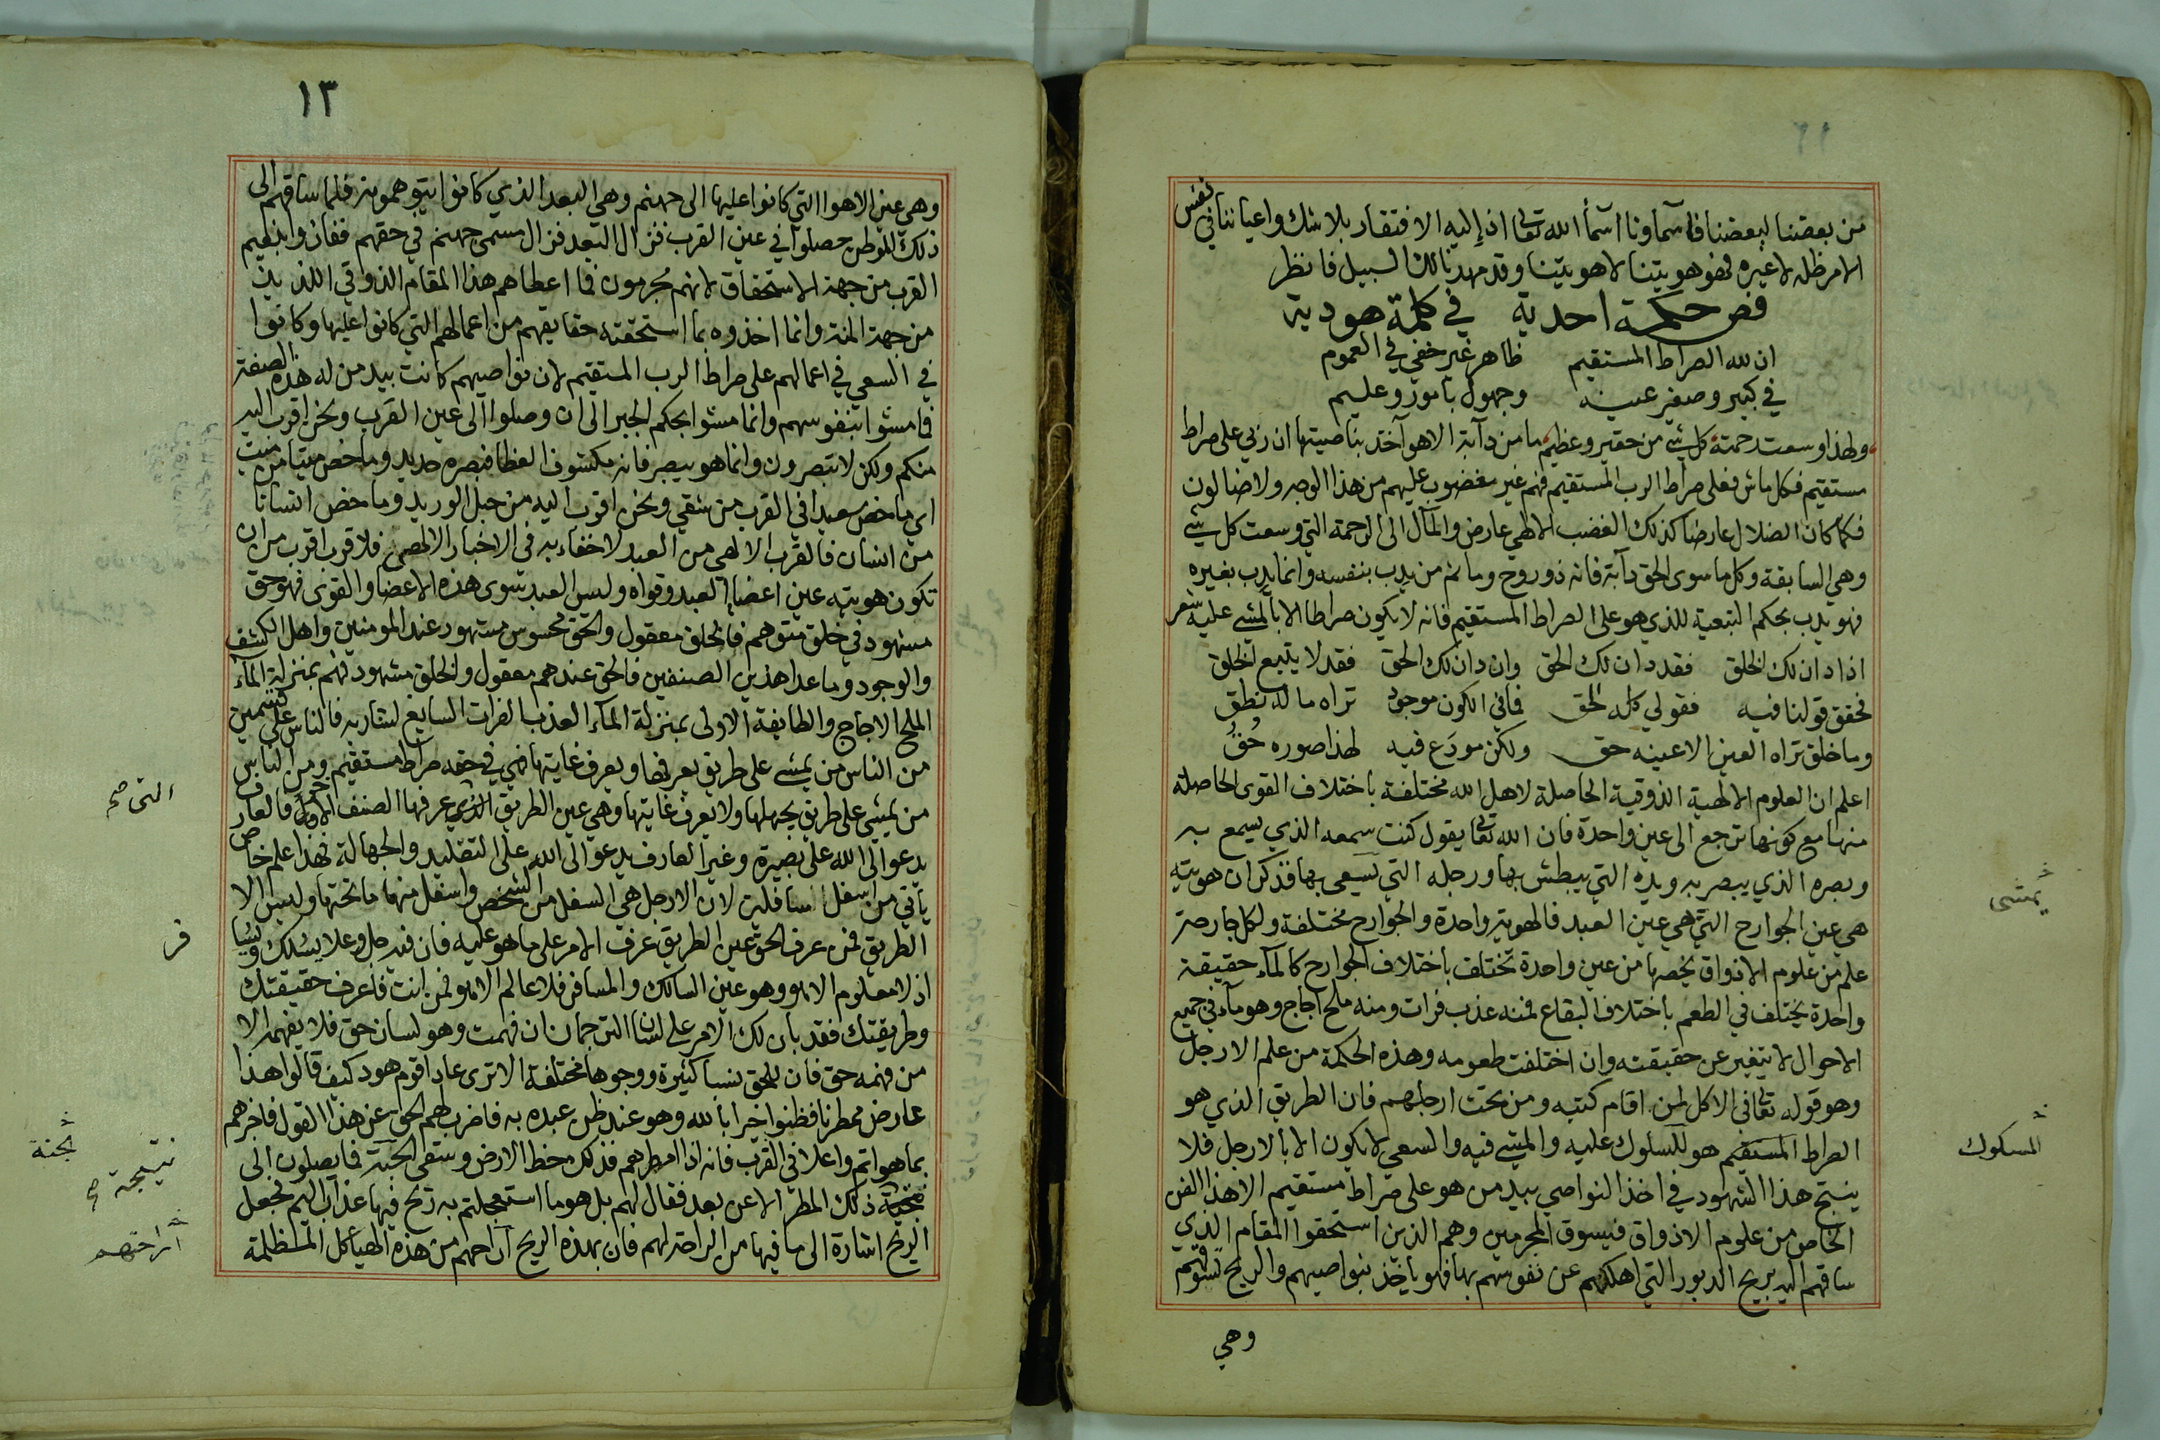 من بعضنا لبعضنا فاسماونا اسمأ الله تعالى اذ إليه الافتقار بلا شك واعياننا في نفس
الامر ظله لا غيره فهو هويتنا لا هويتنا وقد مهدنا لك السبيل فانظر
فص حكمة احدية في كلمة هودية
ان لله الصراط المستقيم ظاهر غير خفي في العموم
في كبير وصغير عينه وجهول بأمور وعليم
ولهذا وسعت رحمته كل شي من حقير وعظيم ما من دآبة الا هو آخذ بناصيتها ان ربي على صراط
مستقيم فكل ماش فعلى صراط الرب المستقيم فهم غير مغضوب عليهم من هذا الوجه ولا ضالون
فكما كان الضلال عارضا كذلك الغضب الالهي عارض والمآل الى الرحمة التي وسعت كل شي
وهي السابقة وكل ما سوى الحق دآبة فانه ذو روح وما ثم من يدب بنفسه وانما يدب بغيره
فهو يدب بحكم التبعية للذي هو على الصراط المستقيم فانه لا يكون صراطا الا بالمشي عليه شعر
اذا دان لك الخلق فقد دان لك الحق وان دان لك الحق فقد لا يتبع الخلق
فحقق قولنا فيه فقولي كله الحق فما في الكون موجود تراه ما له نطق
وما خلق تراه العين الا عينه حق ولكن مودَع فيه لهذا صوره حُقُّ
اعلم ان العلوم الالهية الذوقية الحاصلة لاهل الله مختلفة باختلاف القوى الحاصلة
منها مع كونها ترجع الى عين واحدة فان الله تعالى يقول كنت سمعه الذي يسمع به
وبصره الذي يبصر به ويده التي يبطش بها ورجله التي يسعى بها فذكر ان هويته
هي عين الجوارح التي هي عين العبد فالهوية واحدة والجوارح مختلفة ولكل جارحة
علم من علوم الاذواق يخصها من عين واحدة تختلف باختلاف الجوارح كالمآء حقيقة
واحدة يختلف في الطعم باختلاف البقاع فمنه عذب فرات ومنه ملح اجاج وهو مآء في جميع
الاحوال لا يتغير عن حقيقته وان اختلفت طعومه وهذه الحكمة من علم الارجل
وهو قوله تعالى في الاكل لمن اقام كتبه ومن تحت ارجلهم فان الطريق الذي هو
الصراط المستقيم هو للسلوك عليه والمشي فيه والسعي لا يكون الا بالارجل فلا
ينتج هذا الشهود في اخذ النواصي بيد من هو على صراط مستقيم الا هذا الفن
الخاص من علوم الاذواق فيسوق المجرمين وهم الذين استحقوا المقام الذي
ساقهم اليه بريح الدبور التي اهلكهم عن نفوسهم بها فهو ياخذ بنواصيهم والريح تسوقهم
وهي
يمشى
المسكوك
١٣
وهي عين الاهوا التي كانوا عليها الى جهنم وهي البعد الذي كانوا يتوهمونه فلما ساقهم الى
ذلك الموطن حصلوا في عين القرب فزال البعد فزال مسمى جهنم في حقهم ففازوا بنعيم
القرب من جهة الاستحقاق لانهم مجرمون فما اعطاهم هذا المقام الذوقي اللذيذ
من جهة المنة وانما اخذوه بما استحقته حقايقهم من اعمالهم التي كانوا عليها وكانوا
في السعي في اعمالهم على صراط الرب المستقيم لان نواصيهم كانت بيد من له هذه الصفة
فما مشوا بنفوسهم وانما مشوا بحكم الجبر الى ان وصلوا الى عين القرب ونحن اقرب اليه
منكم ولكن لا تبصرون وانما هو يبصر فانه مكشوف الغطا فبصره حديد وما خص ميتا من ميت
اي ما خص سعيدا في القرب من شقي ونحن اقرب اليه من حبل الوريد وما خص انسانا
من انسان فالقرب الالهي من العبد لا خفاء به في الاخبار الالهي فلا قرب اقرب من ان
تكون هويته عين اعضاء العبد وقواه وليس العبد سوى هذه الاعضا والقوى فهو حق
مشهود في خلق متوهم فالخلق معقول والحق محسوس مشهود عند المومنين واهل الكشف
والوجود وما عدا هذين الصنفين فالحق عندهم معقول والخلق مشهود فهم بمنزلة المآء
الملح الاجاج والطايفة الاولى بمنزلة المآء العذب الفرات السايغ لشاربه فالناس على قسمين
من الناس من يمشي على طريق يعرفها ويعرف غايتها فهي في حقه صراط مستقيم ومن الناس
من يمشي على طريق يجهلها ولا يعرف غايتها وهي عين الطريق الذي عرفها الصنف الاول فالعارف
يدعو الى الله على بصيرة وغير العارف يدعو الى الله على التقليد والجهالة فهذا علم خاص
يأتي من اسفل سافلين لان الارجل هي السفل من الشخص واسفل منها ما تحتها وليس الا
الطريق فمن عرف الحق عين الطريق عرف الامر على ما هو عليه فان فيه جل وعلا يسلك ويسا
اذ لا معلوم الا هو وهو عين السالك والمسافر فلا عالم الا هو فمن انت فاعرف حقيقتك
وطريقتك فقد بان لك الامر على لسان الترجمان ان فهمت وهو لسان حق فلا يفهمه الا
من فهمه حق فان للحق نسبا كثيرة ووجوها مختلفة الا ترى عادا قوم هود كيف قالوا هذا
عارض ممطرنا فظنوا خيرا بالله وهو عند ظن عبده به فاضرب لهم الحق عن هذا القول فاخبرهم
بما هو اتم واعلا في القرب فانه اذا امطرهم فذلك حظ الارض وسقى الحبة فما يصلون الى
نتيجة ذلك المطر الا عن بعد فقال لهم بل هو ما استعجلتم به ريح فيها عذاب اليم فجعل
الريح اشارة الى ما فيها من الراحة لهم فان بهذه الريح اراحهم من هذه الهياكل المظلمة
التى صح
فر
نتيجة صح
اراحتهم